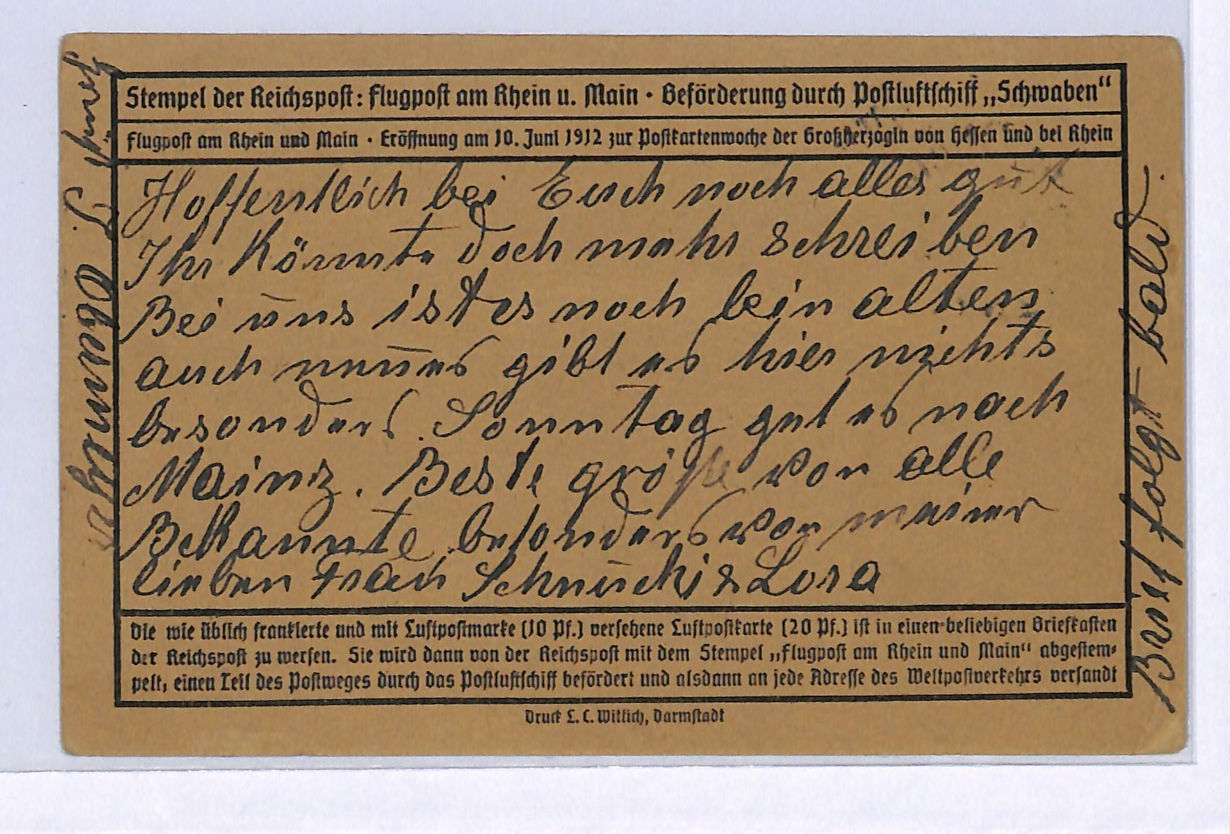 Stempel der Reichspost: Flugpost am Rhein u. Main · Beförderung durch Postluftschiff „Schwaben“
Flugpost am Rhein und Main · Eröffnung am 10. Juni 1912 zur Postkartenwoche der Großherzogin von Hessen und bei Rhein
Hoffentlich bei Euch noch alles gut
Ihr Könnte doch mehr schreiben
Bei uns ist es noch bein alten
auch neues gibt es hier nichts
besonders. Sonntag get es nach
Mainz. Beste grüße von alle
Bekannte besonders von meiner
lieben Frau Schnucki & Lora
Brief folgt bald.
Die wie üblich frankierte und mit Luftpostmarke (10 Pf.) versehene Luftpostkarte (20 Pf.) ist in einen beliebigen Briefkasten
der Reichspost zu werfen. Sie wird dann von der Reichspost mit dem Stempel „Flugpost am Rhein und Main“ abgestem-
pelt, einen Teil des Postweges durch das Postluftschiff befördert und alsdann an jede Adresse des Weltpostverkehrs versandt
Druck L. C. Wittich, Darmstadt